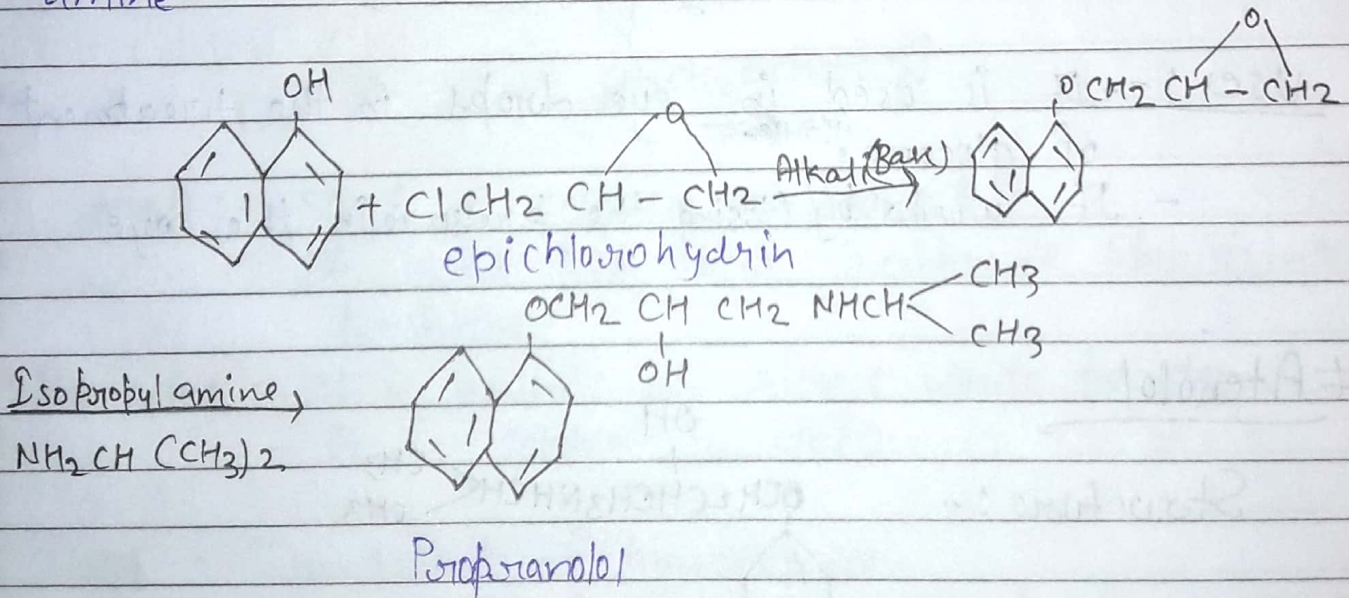 amine
OH
O
O
O CH2 CH - CH2
+ ClCH2 CH - CH2
Alkali (Base)
epichlorohydrin
OCH2 CH CH2 NHCH
CH3
CH3
OH
Isopropyl amine
NH2 CH (CH3)2
Propranolol